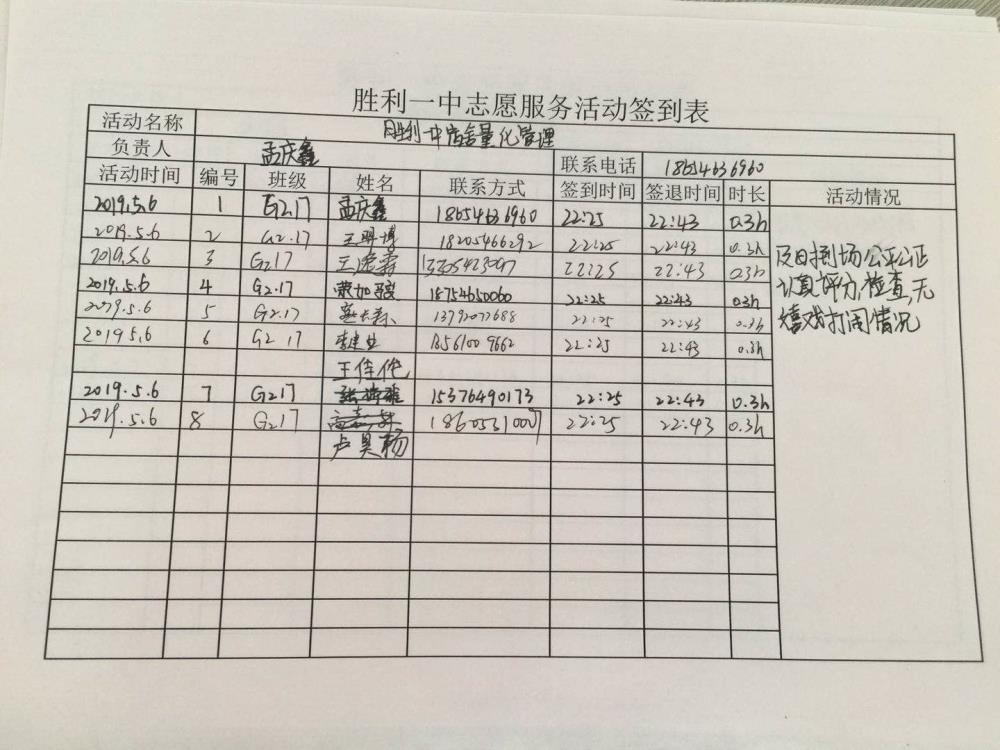 胜利一中志愿服务活动签到表
活动名称 胜利一中宿舍量化管理
负责人 孟庆鑫 联系电话 18654636960
活动时间 编号 班级 姓名 联系方式 签到时间 签退时间 时长 活动情况
2019.5.6 1 G2.17 孟庆鑫 18654636960 22:25 22:43 0.3h
2019.5.6 2 G2.17 王明博 18205466292 22:25 22:43 0.3h
2019.5.6 3 G2.17 22:25 22:43 0.3h
2019.5.6 4 G2.17 18754650060 22:25 22:43 0.3h
2019.5.6 5 G2.17 13792072688 22:25 22:43 0.3h
2019 5.6 6 G2 17 22:25 22:43 0.3h
王佳伦
2019.5.6 7 G2.17 15376490173 22:25 22:43 0.3h
2019.5.6 8 G2.17 22:25 22:43 0.3h
卢昊畅
及时到场公平公正
认真评分,检查,无
嬉戏打闹情况